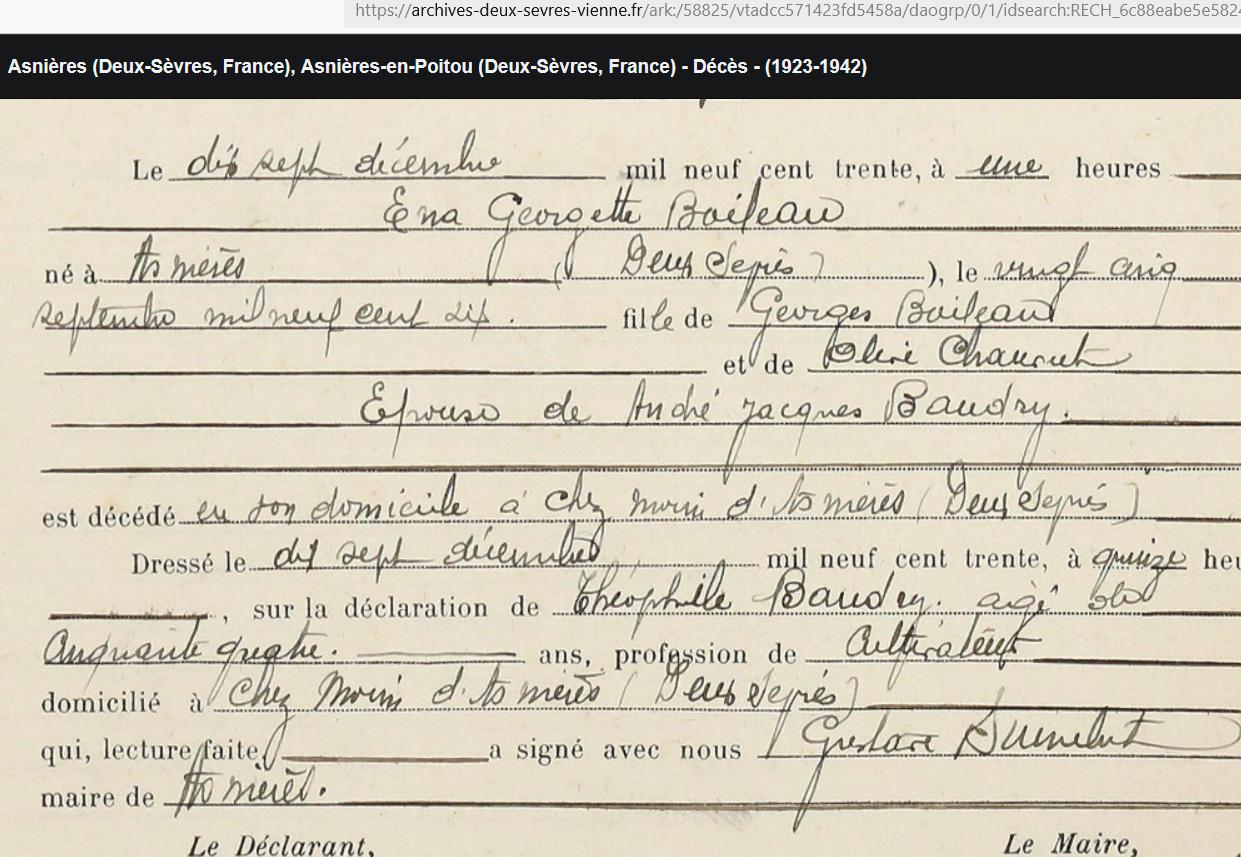 https://archives-deux-sevres-vienne.fr/ark:/58825/vtadcc571423fd5458a/daogrp/0/1/idsearch:RECH_6c88eabe5e5824
Asnières (Deux-Sèvres, France), Asnières-en-Poitou (Deux-Sèvres, France) - Décès - (1923-1942)
Le dix sept décembre mil neuf cent trente, à une heures
Ena Georgette Boileau
né à Asnières (Deux Sèvres), le vingt cinq
septembre mil neuf cent dix. fille de Georges Boileau
et de
Epouse de André Jacques Baudry.
est décédé en son domicile à Chez Morin d'Asnières (Deux Sèvres)
Dressé le dix sept décembre mil neuf cent trente, à quinze heu
, sur la déclaration de Théophille Baudry. agé de
Cinquante quatre. ans, profession de Cultivateur
domicilié à Chez Morin d'Asnières (Deux Sèvres)
qui, lecture faite, a signé avec nous Gustave
maire de Asnières.
Le Déclarant, Le Maire,